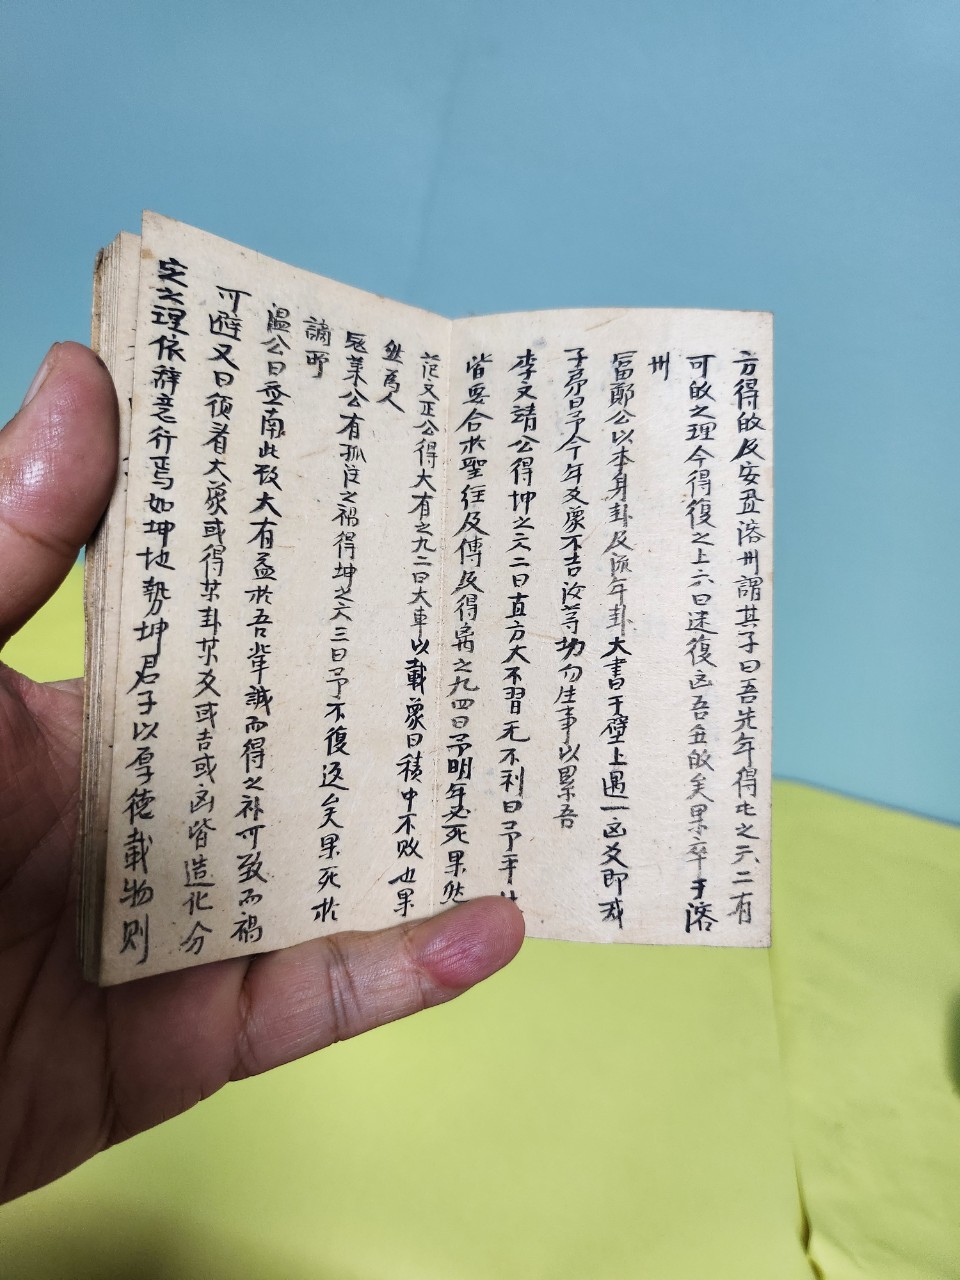 方得的及安置溶州謂其子曰吾先年得屯之六二有
可的之理今得復之上六曰迷復凶吾丑的矣果卒于溶
州
富鄭公以本身卦及流年卦大書于壁上遇一凶爻即戒
子弟曰予今年爻象不吉汝等切勿生事以累吾
李文靖公得坤之六二曰直方大不習无不利曰予平
皆要合於聖往及傳及得离之九四曰予明年必死果然
范文正公得大有之九二曰大車以載象曰積中不敗也果
然為人
寇萊公有孤注之禍得坤之六三曰予不復返矣果死於
謫所
溫公曰至南此致大有益於吾輩誠而得之补可致而禍
可避又曰須看大象或得某卦某爻或吉或凶皆造化分
定之理依辭意行焉如坤地勢坤君子以厚德載物則